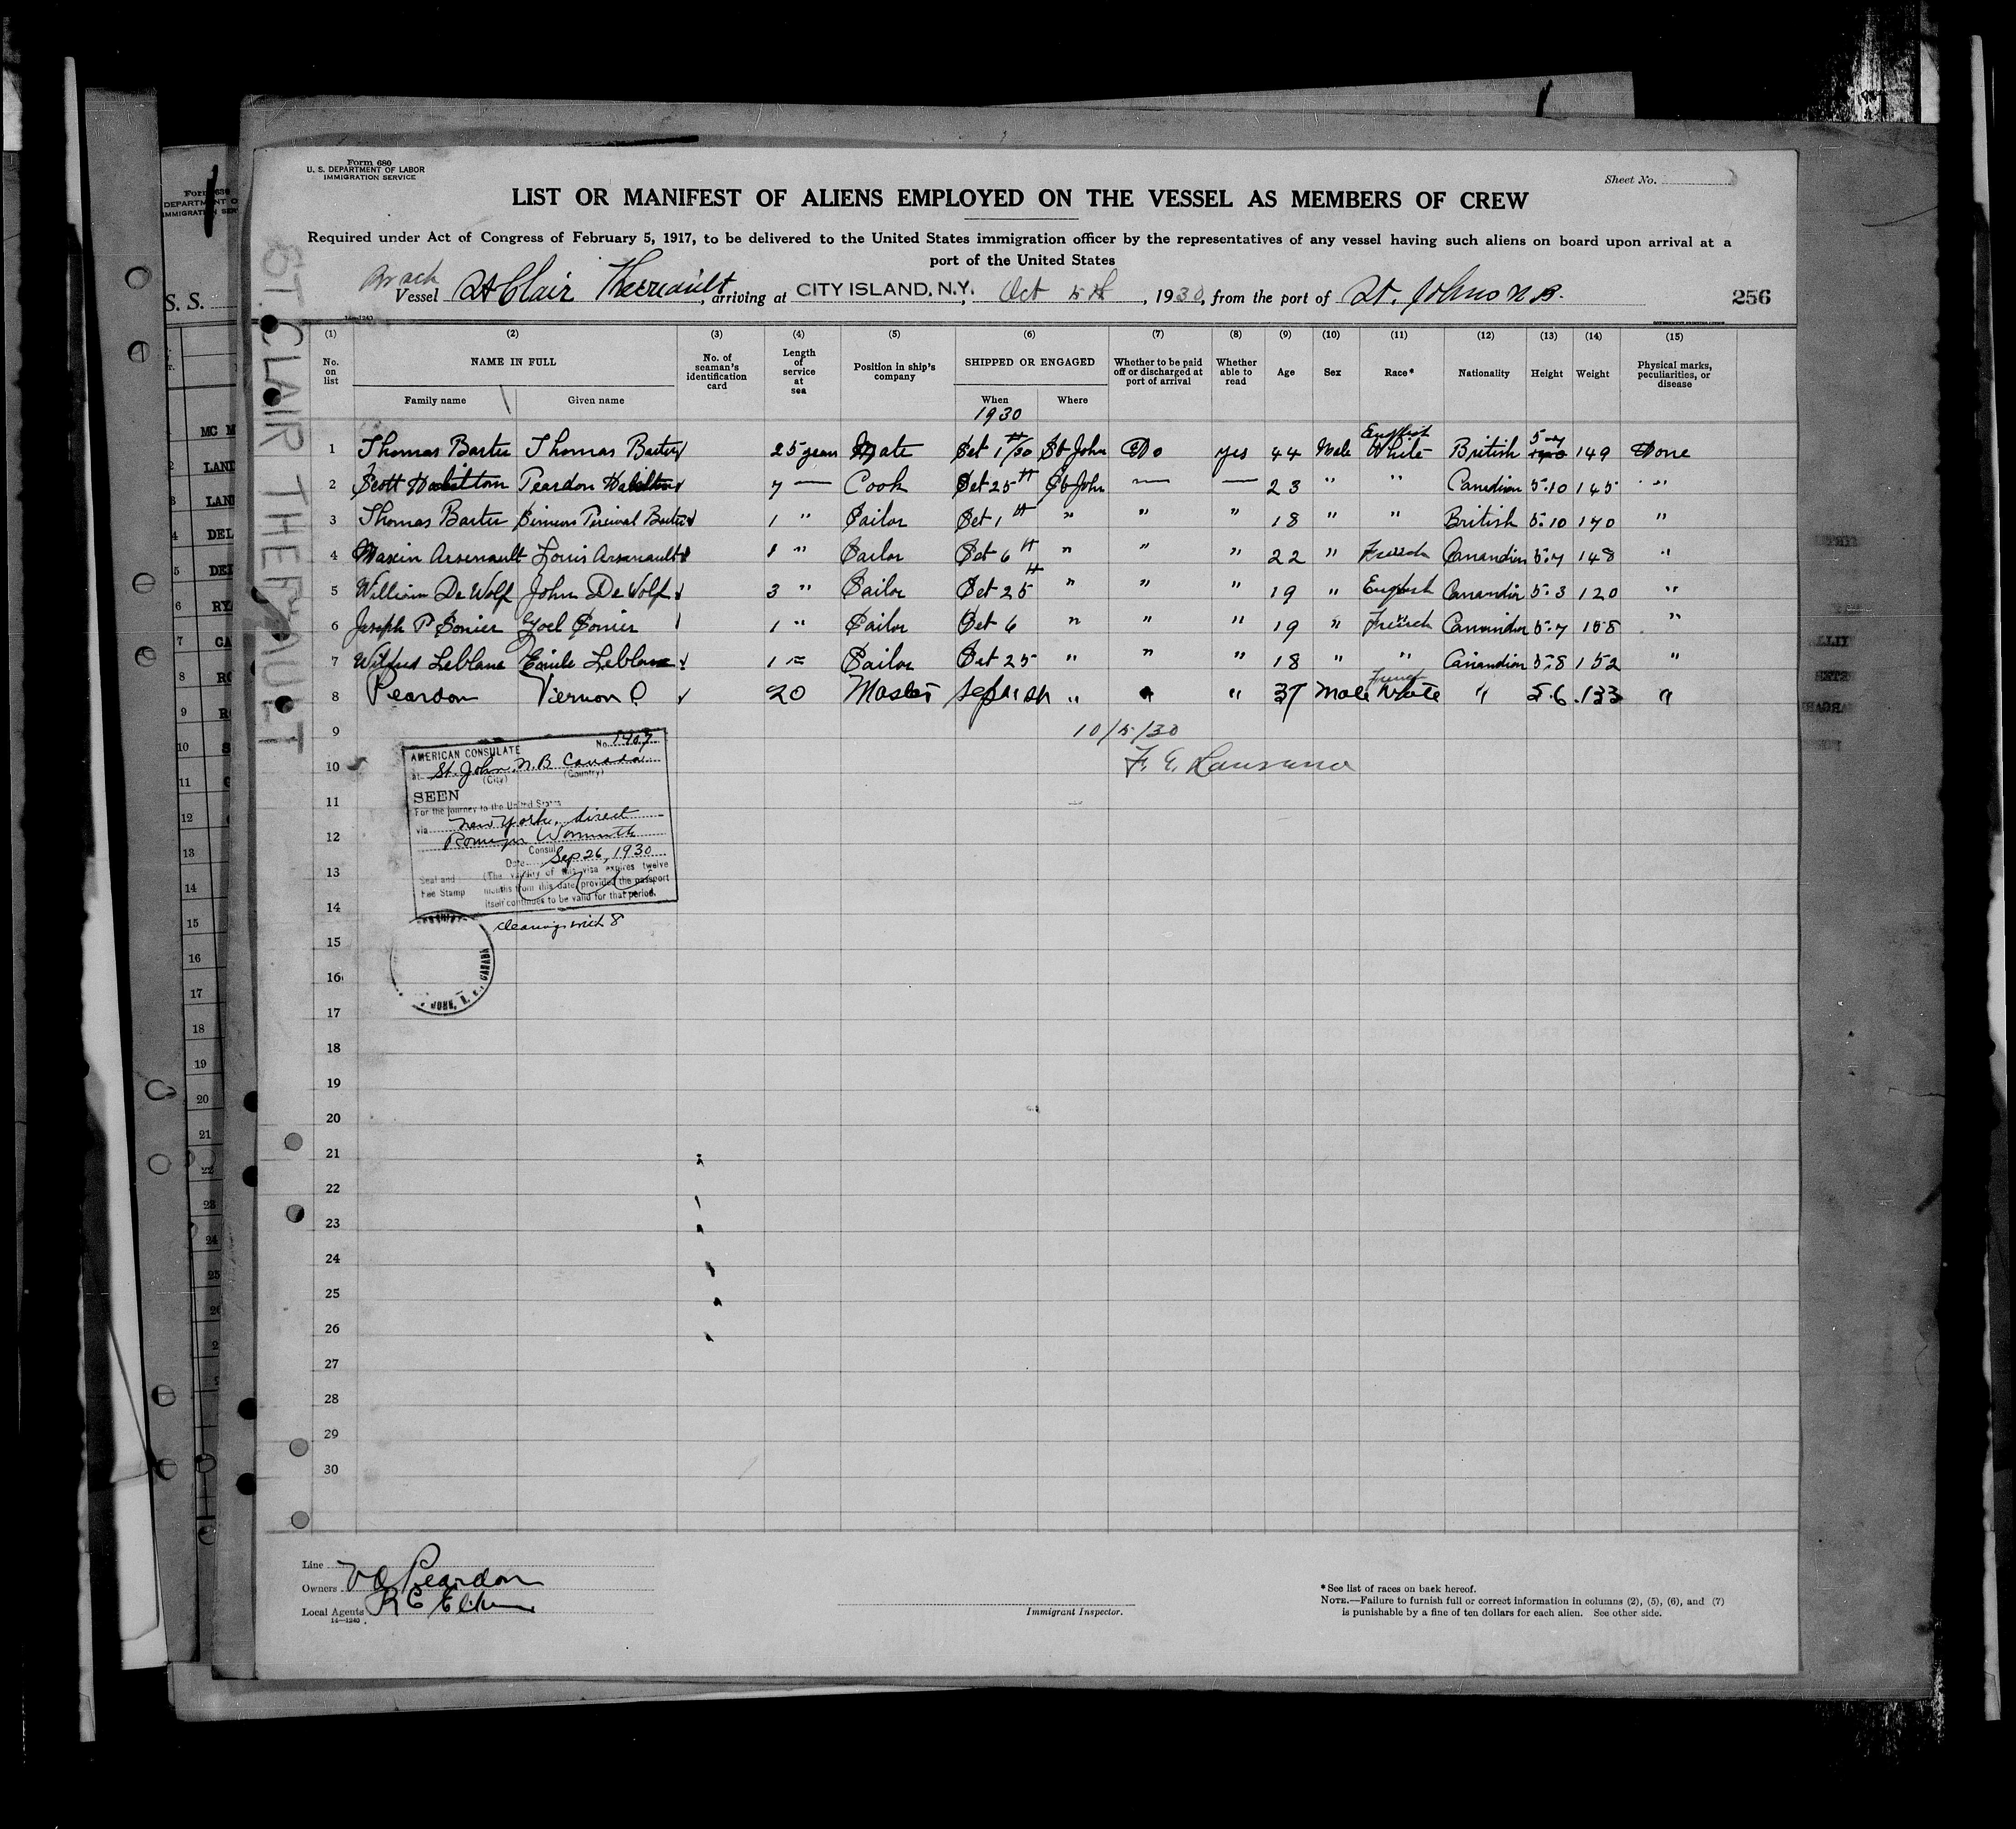 Form 680
U. S. DEPARTMENT OF LABOR
IMMIGRATION SERVICE
Sheet No.
LIST OR MANIFEST OF ALIENS EMPLOYED ON THE VESSEL AS MEMBERS OF CREW
Required under Act of Congress of February 5, 1917, to be delivered to the United States immigration officer by the representatives of any vessel having such aliens on board upon arrival at a
port of the United States
Vessel St Clair Therriault, arriving at CITY ISLAND, N.Y., Oct 5th, 1930, from the port of St. Johns N.B.
256
ST. CLAIR THERIAULT
(1) (2) (3) (4) (5) (6) (7) (8) (9) (10) (11) (12) (13) (14) (15)
No. on list
NAME IN FULL
Family name
Given name
No. of seaman's identification card
Length of service at sea
Position in ship's company
SHIPPED OR ENGAGED
When
Where
1930
Whether to be paid off or discharged at port of arrival
Whether able to read
Age
Sex
Race*
Nationality
Height
Weight
Physical marks, peculiarities, or disease
1 Thomas Barter Thomas Barter 25 years Mate Set 1st/30 St John No yes 44 Male English White British 5-7 149 None
2 Scott Peardon 7 — Cook Set 25th St John — — 23 " " Canadian 5.10 145 "
3 Thomas Barter Simeon Percival Barter 1 " Sailor Set 1st " " " 18 " " British 5.10 170 "
4 Maxin Arsenault Louis Arsenault 1 " Sailor Set 6th " " " 22 " French Canandian 5.7 148 "
5 William De Wolf John De Wolf 3 " Sailor Set 25th " " " 19 " English Canandian 5.3 120 "
6 Joseph P Sonier Yoel Sonier 1 " Sailor Set 6 " " " 19 " French Canandian 5.7 158 "
7 Wilfred Leblanc Emile Leblanc 1 " Sailor Set 25 " " " 18 " " Canandian 5.8 152 "
8 Peardon Vernon O. 20 Master " " " 37 Male White " 5.6 133 "
9 10/5/30
10 F. E.
11
12
13
14
15
16
17
18
19
20
21
22
23
24
25
26
27
28
29
30
AMERICAN CONSULATE No. 1407
at St. John, N.B. Canada
(City) (Country)
SEEN
For the journey to the United States
via New York, direct
Romeyn Wormuth
Consul
Date Sep 26, 1930
Seal and
Fee Stamp
(The validity of this visa expires twelve
months from this date, provided the passport
itself continues to be valid for that period.
clearing with 8
JOHN, N. B., CANADA
Line
Owners V O Peardon
Local Agents R C Elkin
14—1240
Immigrant Inspector.
*See list of races on back hereof.
NOTE.—Failure to furnish full or correct information in columns (2), (5), (6), and (7)
is punishable by a fine of ten dollars for each alien. See other side.